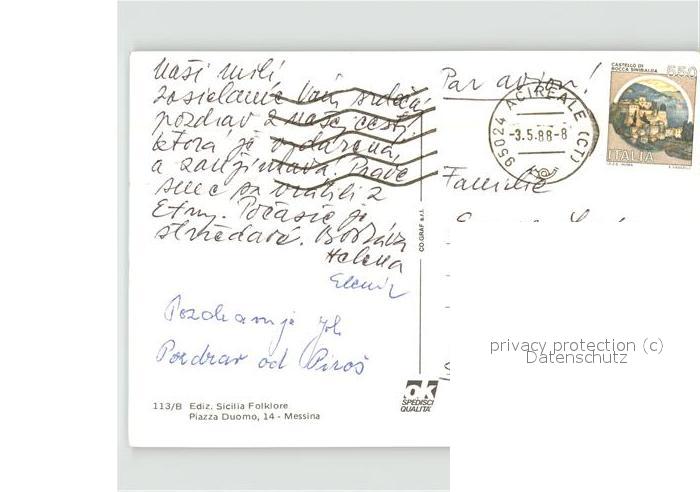 Naši milí
zasielame Vám srdečný
pozdrav z našej cesty,
ktorá je vydarená
a zaujímavá. Práve
sme sa vrátili z
Etny. Počasie je
striedavé. Bozkáva
Helena
Pozdravuje
Pozdrav od Piroš
113/B Ediz. Sicilia Folklore
Piazza Duomo, 14 - Messina
CO.GRAF s.r.l.
ok
SPEDISCI
QUALITÀ
Par avion!
95024 ACIREALE (CT)
-3.5.88-8
CASTELLO DI
ROCCA SINIBALDA
550
ITALIA
Familie
privacy protection (c)
Datenschutz